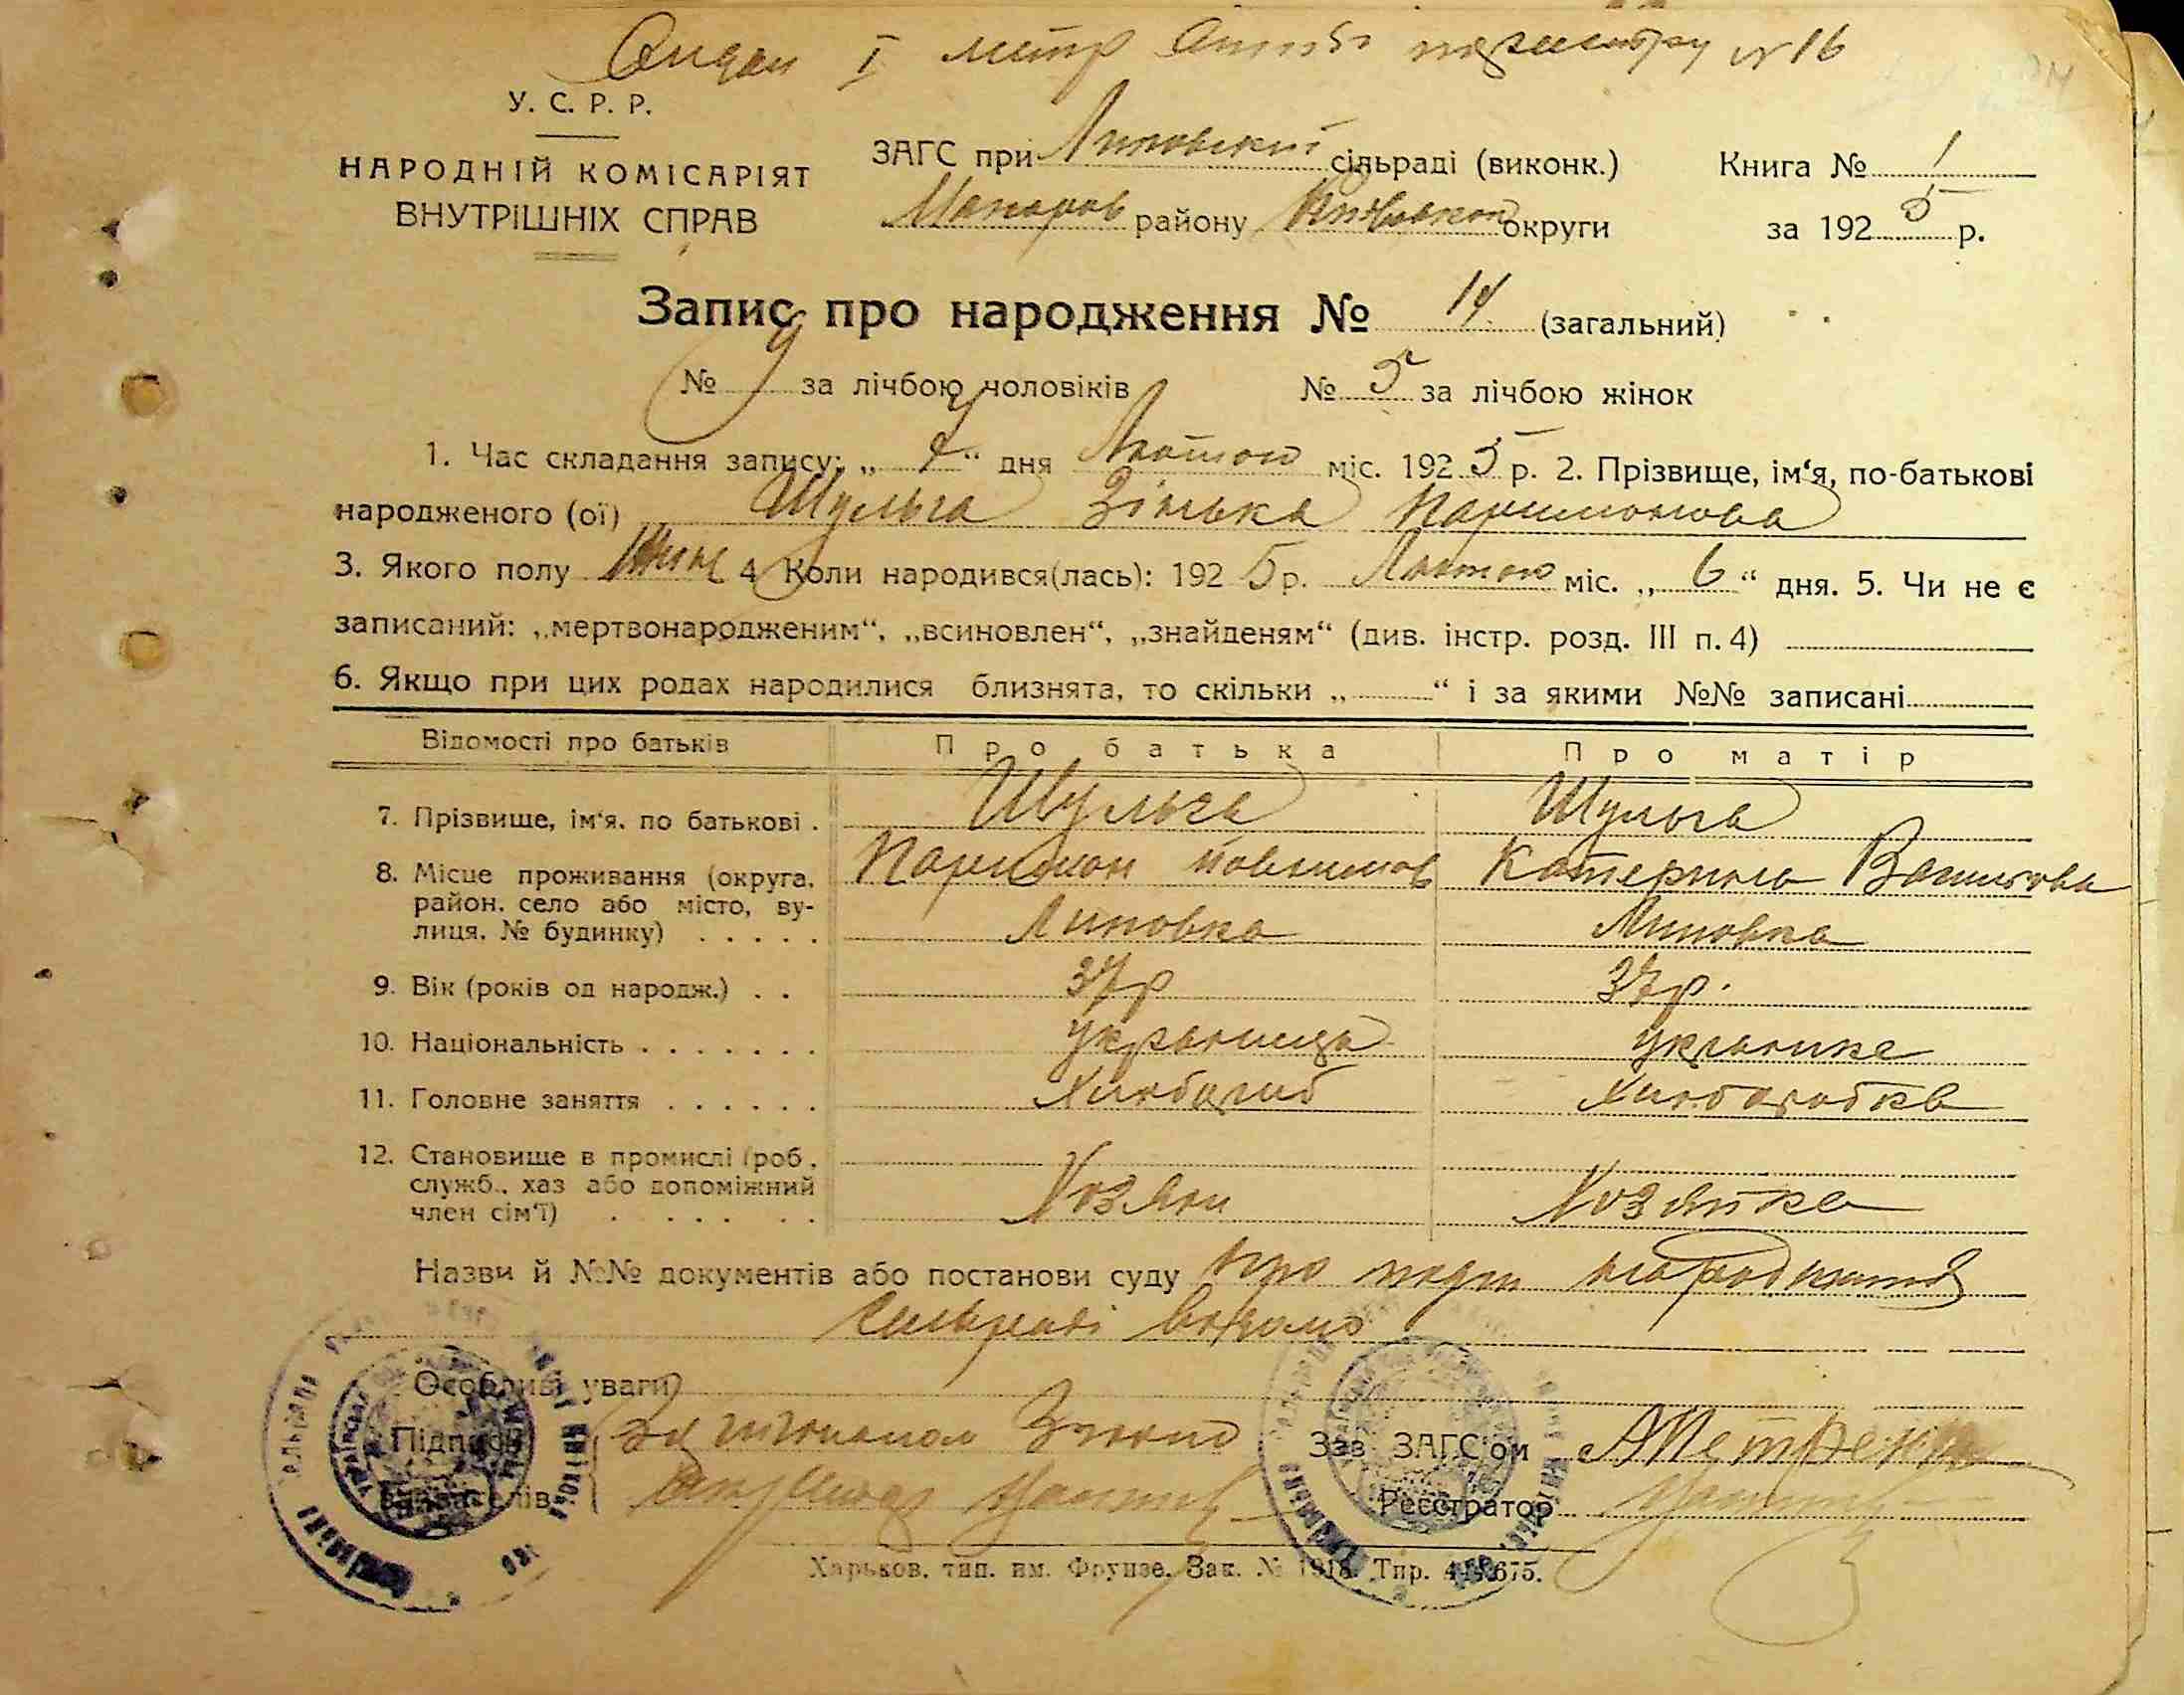 У. С. Р. Р.
НАРОДНІЙ КОМІСАРІЯТ
ВНУТРІШНІХ СПРАВ
ЗАГС при Липовскій сільраді (виконк.)
Макаров району округи
Книга № 1
за 1925 р.
Запис про народження № 14 (загальний)
№ 9 за лічбою чоловіків № 5 за лічбою жінок
1. Час складання запису: „7“ дня Лютого міс. 1925 р. 2. Прізвище, ім‘я, по-батькові
народженого (ої) Шульга Зінька
3. Якого полу 4 Коли народився(лась): 1925 р. Лютого міс. „6“ дня. 5. Чи не є
записаний: „мертвонародженим“, „всиновлен“, „знайденям“ (див. інстр. розд. III п. 4)
6. Якщо при цих родах народилися близнята, то скільки „ “ і за якими №№ записані
Відомості про батьків Про батька Про матір
7. Прізвище, ім‘я, по батькові . Шульга Шульга
8. Місце проживання (округа, Катерина
район, село або місто, ву-
лиця, № будинку) . . . . . Липовка Липовка
9. Вік (років од народж.) . . 37р 37р.
10. Національність . . . . . . . українець українка
11. Головне заняття . . . . . . Хлібороб Хліборобка
12. Становище в промислі (роб.,
служб., хаз або допоміжний
член сім‘ї) Хозяін Хозяйка
Назви й №№ документів або постанови суду про
Сільраді відомо
Особливі уваги
Підписи
Заявителів
Зав ЗАГС‘ом
Реєстратор
Харьков. тип. им. Фрунзе. Зак. № 1918. Тир.